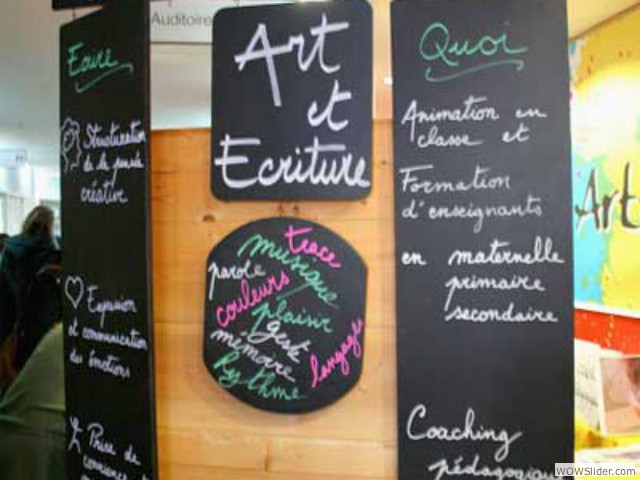 Auditoire
Ecrire
Structuration
de la pensée
créative
Expression
et communication
des émotions
Prise de
conscience
Art
et
Ecriture
trace
musique
parole
couleurs
plaisir
geste
mémoire
langages
Rythme
Quoi
Animation en
classe et
Formation
d'enseignants
en maternelle
primaire
secondaire
Coaching
pédagogique
Art
WOWSlider.com